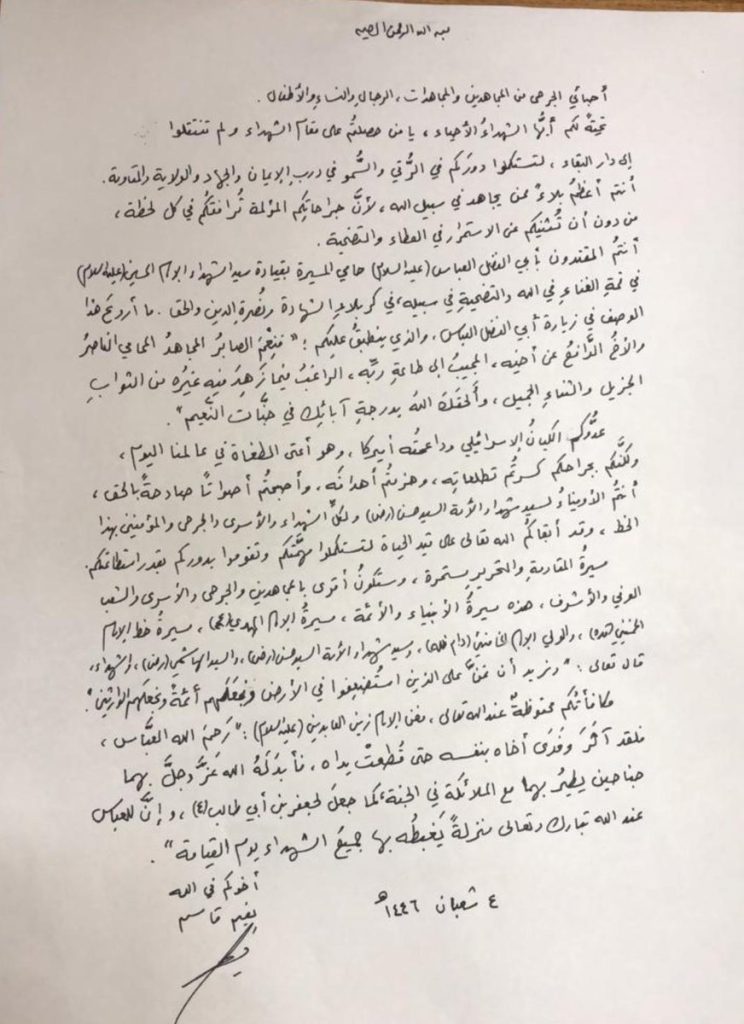 بسم الله الرحمن الرحيم
أحبائي الجرحى من المجاهدين والمجاهدات، الرجال والنساء والأطفال.
تحيةٌ لكم أيُّها الشهداءُ الأحياء، يا من حصلتُم على مقام الشهداء ولم تنتقلوا
إلى دار البقاء، لتستكملوا دورَكم في الرُّقي والسُّمو في دربِ الإيمان والجهاد والولاية والمقاومة.
أنتم أعظمُ بلاءً ممن يجاهد في سبيل الله، لأنَّ جراحاتِكم المؤلمة تُرافقُكم في كل لحظة،
من دون أن تُثنيكم عن الاستمرار في العطاء والتضحية.
أنتُم المقتدون بأبي الفضل العباس (عليه السلام) حامي المسيرة بقيادة سيد الشهداء الإمام الحسين (عليه السلام)
في قمة الفناءِ في الله والتضحيةِ في سبيله، في كربلاء الشهادة ونُصرةِ الدين والحق. ما أروعَ هذا
الوصف في زيارة أبي الفضل العباس، والذي ينطبقُ عليكم: "فنِعْمَ الصابرُ المجاهدُ المحامي الناصرُ
والأخُ الدَّافعُ عن أخيه، المجيبُ إلى طاعةِ ربِّه، الراغبُ فيما زَهِدَ فيه غيرُه من الثوابِ
الجزيل والثناءِ الجميل، وألحقَكَ اللهُ بدرجةِ آبائِك في جنَّات النَّعيم".
عدُّوكم الكيانُ الإسرائيلي وداعمتُه أميركا، وهو أعتى الطغاة في عالمنا اليوم،
ولكنَّكم بجراحكم كسرتُم تطلعاتِه، وهزمتُم أهدافَه، وأصبحتُم أصواتاً صادحةً بالحق،
أنتُم الأوفياءُ لسيد شهداء الأمة السيد حسن (رض) ولكلِّ الشهداء والأسرى والجرحى والمؤمنين بهذا
الخط، وقد أبقاكُم الله تعالى على قيد الحياة لتستكملوا مهمَّتكم وتقوموا بدوركم بقدر استطاعتكم.
مسيرةُ المقاومةِ والتحرير مستمرة، وستكونُ أقوى بالمجاهدين والجرحى والأسرى والشعب
الوفي والأشرف، هذه مسيرةُ الأنبياء والأئمة، مسيرةُ الإمام المهدي (عج)، مسيرةُ خط الإمام
الخميني (قده)، والولي الإمام الخامنئي (دام ظله)، وسيد شهداء الأمة السيد حسن (رض)، والسيد الهاشمي (رض)، والشهداء،
قال تعالى: "ونريد أن نمنَّ على الذين استُضعِفوا في الأرض ونجعلَهم أئمةً ونجعلَهم الوارثين".
مكافأتُكم محفوظةٌ عند الله تعالى، فعن الإمام زين العابدين (عليه السلام): "رَحِمَ الله العبَّاس،
فلقد آثَرَ وفَدَى أخاه بنفسه حتى قُطعتْ يداه، فأبدَلَهُ الله عَزَّ وجلَّ بهما
جناحين يطيرُ بهما مع الملائكة في الجنة، كما جعلَ لجعفر بن أبي طالب (ع)، وإنَّ للعباس
عند الله تبارك وتعالى منزلةً يَغبِطُه بها جميعُ الشهداء يوم القيامة".
أخوكم في الله
نعيم قاسم
٤ شعبان ١٤٤٦هـ